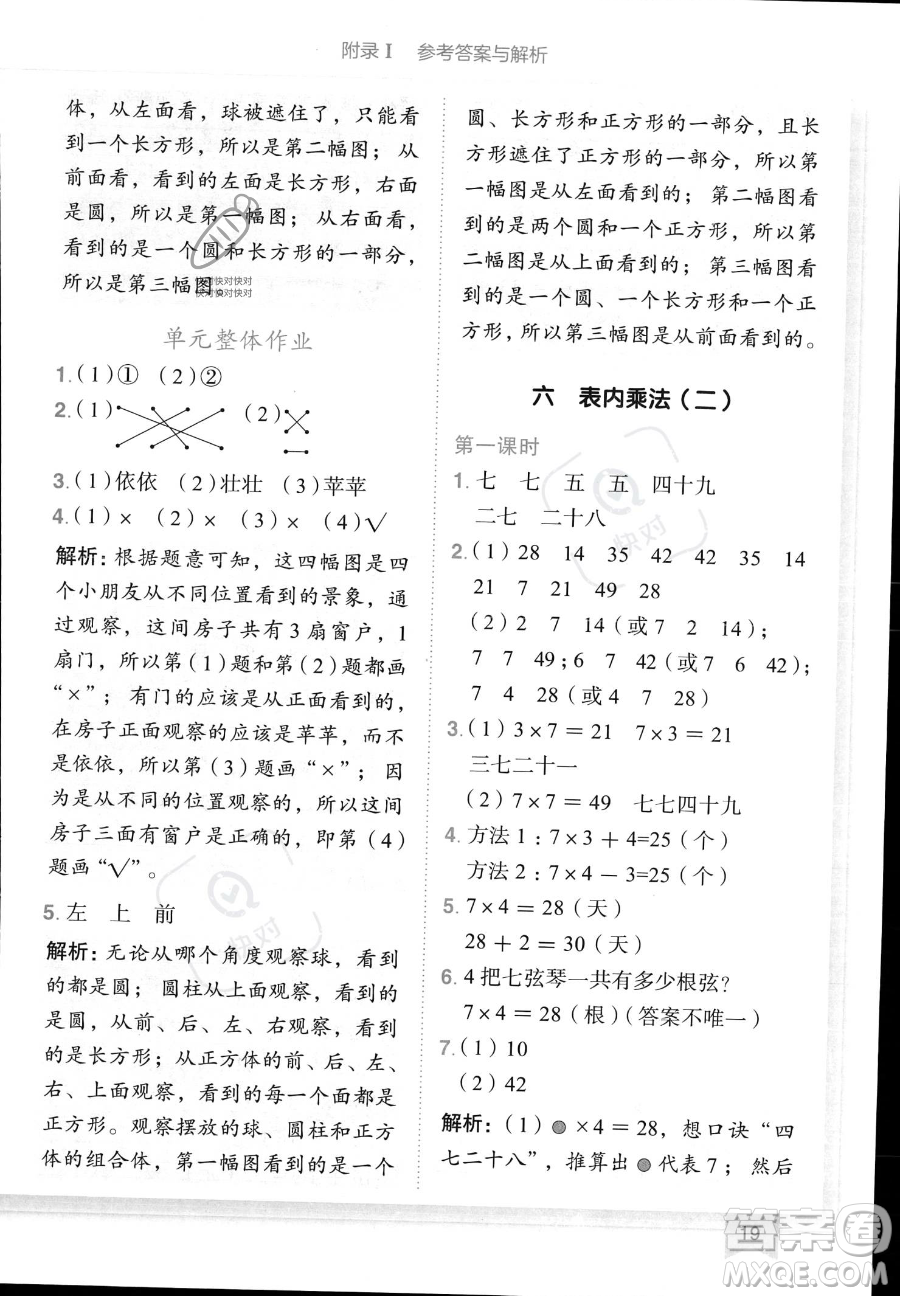 附录Ⅰ 参考答案与解析
体，从左面看，球被遮住了，只能看
到一个长方形，所以是第二幅图；从
前面看，看到的左面是长方形，右面
是圆，所以是第一幅图；从右面看，
看到的是一个圆和长方形的一部分，
所以是第三幅图。
快对快对快对
快对快对快对
单元整体作业
1.(1)① (2)②
2.(1) (2)
3.(1)依依 (2)壮壮 (3)苹苹
4.(1)× (2)× (3)× (4)√
解析：根据题意可知，这四幅图是四
个小朋友从不同位置看到的景象，通
过观察，这间房子共有3扇窗户，1
扇门，所以第(1)题和第(2)题都画
“×”；有门的应该是从正面看到的，
在房子正面观察的应该是苹苹，而不
是依依，所以第(3)题画“×”；因
为是从不同的位置观察的，所以这间
房子三面有窗户是正确的，即第(4)
题画“√”。
5.左 上 前
解析：无论从哪个角度观察球，看到
的都是圆；圆柱从上面观察，看到的
是圆，从前、后、左、右观察，看到的
是长方形；从正方体的前、后、左、
右、上面观察，看到的每一个面都是
正方形。观察摆放的球、圆柱和正方
体的组合体，第一幅图看到的是一个
圆、长方形和正方形的一部分，且长
方形遮住了正方形的一部分，所以第
一幅图是从左面看到的；第二幅图看
到的是两个圆和一个正方形，所以第
二幅图是从上面看到的；第三幅图看
到的是一个圆、一个长方形和一个正
方形，所以第三幅图是从前面看到的。
六 表内乘法(二)
第一课时
1.七 七 五 五 四十九
二七 二十八
2.(1)28 14 35 42 42 35 14
21 7 21 49 28
(2)2 7 14(或7 2 14)；
7 7 49；6 7 42(或7 6 42)；
7 4 28(或4 7 28)
3.(1)3×7=21 7×3=21
三七二十一
(2)7×7=49 七七四十九
4.方法1：7×3+4=25(个)
方法2：7×4-3=25(个)
5.7×4=28(天)
28+2=30(天)
6.4把七弦琴一共有多少根弦？
7×4=28(根)(答案不唯一)
7.(1)10
(2)42
解析：(1)●×4=28，想口诀“四
七二十八”，推算出●代表7；然后
快对
快对
19
答案圈
MXQE.COM